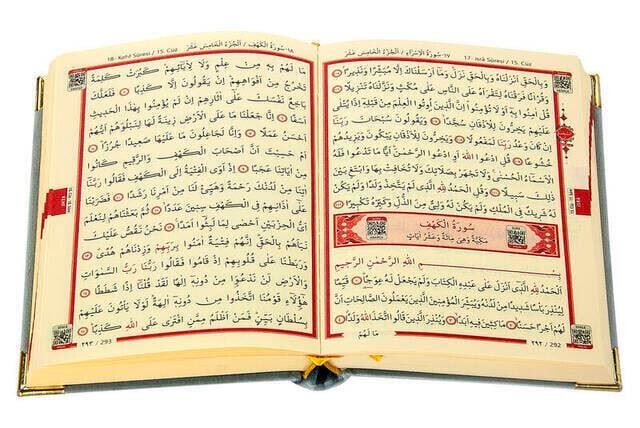 ١٧-سُورَةُ الْاِسْرَاءِ / اَلْجُزْءُ الْخَامِسَ عَشَرَ 17- İsrâ Sûresi / 15. Cüz
وَبِالْحَقِّ اَنْزَلْنَاهُ وَبِالْحَقِّ نَزَلَ وَمَٓا اَرْسَلْنَاكَ اِلَّا مُبَشِّرًا وَنَذِيرًا
وَقُرْاٰنًا فَرَقْنَاهُ لِتَقْرَاَهُ عَلَى النَّاسِ عَلٰى مُكْثٍ وَنَزَّلْنَاهُ تَنْزِيلًا
قُلْ اٰمِنُوا بِهِ اَوْ لَا تُؤْمِنُوا اِنَّ الَّذِينَ اُوتُوا الْعِلْمَ مِنْ قَبْلِهِ اِذَا يُتْلٰى
عَلَيْهِمْ يَخِرُّونَ لِلْاَذْقَانِ سُجَّدًا وَيَقُولُونَ سُبْحَانَ رَبِّنَا
اِنْ كَانَ وَعْدُ رَبِّنَا لَمَفْعُولًا وَيَخِرُّونَ لِلْاَذْقَانِ يَبْكُونَ وَيَزِيدُهُمْ
خُشُوعًا قُلِ ادْعُوا اللّٰهَ اَوِ ادْعُوا الرَّحْمٰنَ اَيًّا مَا تَدْعُوا فَلَهُ
الْاَسْمَاءُ الْحُسْنٰى وَلَا تَجْهَرْ بِصَلَاتِكَ وَلَا تُخَافِتْ بِهَا وَابْتَغِ بَيْنَ
ذٰلِكَ سَبِيلًا وَقُلِ الْحَمْدُ لِلّٰهِ الَّذِي لَمْ يَتَّخِذْ وَلَدًا وَلَمْ يَكُنْ
لَهُ شَرِيكٌ فِي الْمُلْكِ وَلَمْ يَكُنْ لَهُ وَلِيٌّ مِنَ الذُّلِّ وَكَبِّرْهُ تَكْبِيرًا
سُورَةُ الْكَهْفِ
مَكِّيَّةٌ وَهِيَ مِائَةٌ وَعَشْرُ اٰيَاتٍ
بِسْمِ اللّٰهِ الرَّحْمٰنِ الرَّحِيمِ
اَلْحَمْدُ لِلّٰهِ الَّذِي اَنْزَلَ عَلٰى عَبْدِهِ الْكِتَابَ وَلَمْ يَجْعَلْ لَهُ عِوَجًا قَيِّمًا
لِيُنْذِرَ بَاْسًا شَدِيدًا مِنْ لَدُنْهُ وَيُبَشِّرَ الْمُؤْمِنِينَ الَّذِينَ يَعْمَلُونَ الصَّالِحَاتِ اَنَّ
لَهُمْ اَجْرًا حَسَنًا مَاكِثِينَ فِيهِ اَبَدًا وَيُنْذِرَ الَّذِينَ قَالُوا اتَّخَذَ اللّٰهُ وَلَدًا
مَا لَهُمْ
٢٩٢ / 292
18- Kehf Sûresi / 15. Cüz ١٨-سُورَةُ الْكَهْفِ / اَلْجُزْءُ الْخَامِسَ عَشَرَ
مَا لَهُمْ بِهِ مِنْ عِلْمٍ وَلَا لِاٰبَائِهِمْ كَبُرَتْ كَلِمَةً
تَخْرُجُ مِنْ اَفْوَاهِهِمْ اِنْ يَقُولُونَ اِلَّا كَذِبًا فَلَعَلَّكَ
بَاخِعٌ نَفْسَكَ عَلٰى اٰثَارِهِمْ اِنْ لَمْ يُؤْمِنُوا بِهٰذَا الْحَدِيثِ
اَسَفًا اِنَّا جَعَلْنَا مَا عَلَى الْاَرْضِ زِينَةً لَهَا لِنَبْلُوَهُمْ اَيُّهُمْ
اَحْسَنُ عَمَلًا وَاِنَّا لَجَاعِلُونَ مَا عَلَيْهَا صَعِيدًا جُرُزًا
اَمْ حَسِبْتَ اَنَّ اَصْحَابَ الْكَهْفِ وَالرَّقِيمِ كَانُوا
مِنْ اٰيَاتِنَا عَجَبًا اِذْ اَوَى الْفِتْيَةُ اِلَى الْكَهْفِ فَقَالُوا رَبَّنَا
اٰتِنَا مِنْ لَدُنْكَ رَحْمَةً وَهَيِّئْ لَنَا مِنْ اَمْرِنَا رَشَدًا فَضَرَبْنَا
عَلٰى اٰذَانِهِمْ فِي الْكَهْفِ سِنِينَ عَدَدًا ثُمَّ بَعَثْنَاهُمْ لِنَعْلَمَ
اَيُّ الْحِزْبَيْنِ اَحْصٰى لِمَا لَبِثُوا اَمَدًا نَحْنُ نَقُصُّ عَلَيْكَ
نَبَاَهُمْ بِالْحَقِّ اِنَّهُمْ فِتْيَةٌ اٰمَنُوا بِرَبِّهِمْ وَزِدْنَاهُمْ هُدًى
وَرَبَطْنَا عَلٰى قُلُوبِهِمْ اِذْ قَامُوا فَقَالُوا رَبُّنَا رَبُّ السَّمٰوَاتِ
وَالْاَرْضِ لَنْ نَدْعُوَا مِنْ دُونِهِ اِلٰهًا لَقَدْ قُلْنَا اِذًا شَطَطًا
هٰؤُلَاءِ قَوْمُنَا اتَّخَذُوا مِنْ دُونِهِ اٰلِهَةً لَوْلَا يَاْتُونَ عَلَيْهِمْ
بِسُلْطَانٍ بَيِّنٍ فَمَنْ اَظْلَمُ مِمَّنِ افْتَرٰى عَلَى اللّٰهِ كَذِبًا
٢٩٣ / 293